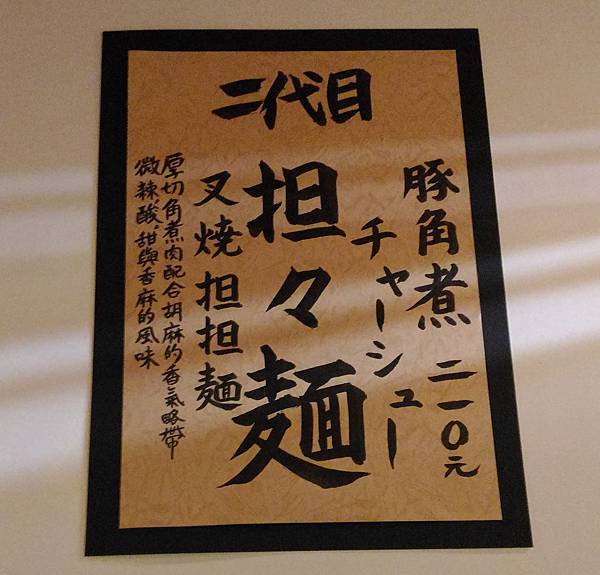 二代目
豚角煮 二一〇元
チャーシュー
担々麺
叉燒担担麺
厚切角煮肉配合胡麻的香氣略帶
微辣、酸、甜與香麻的風味